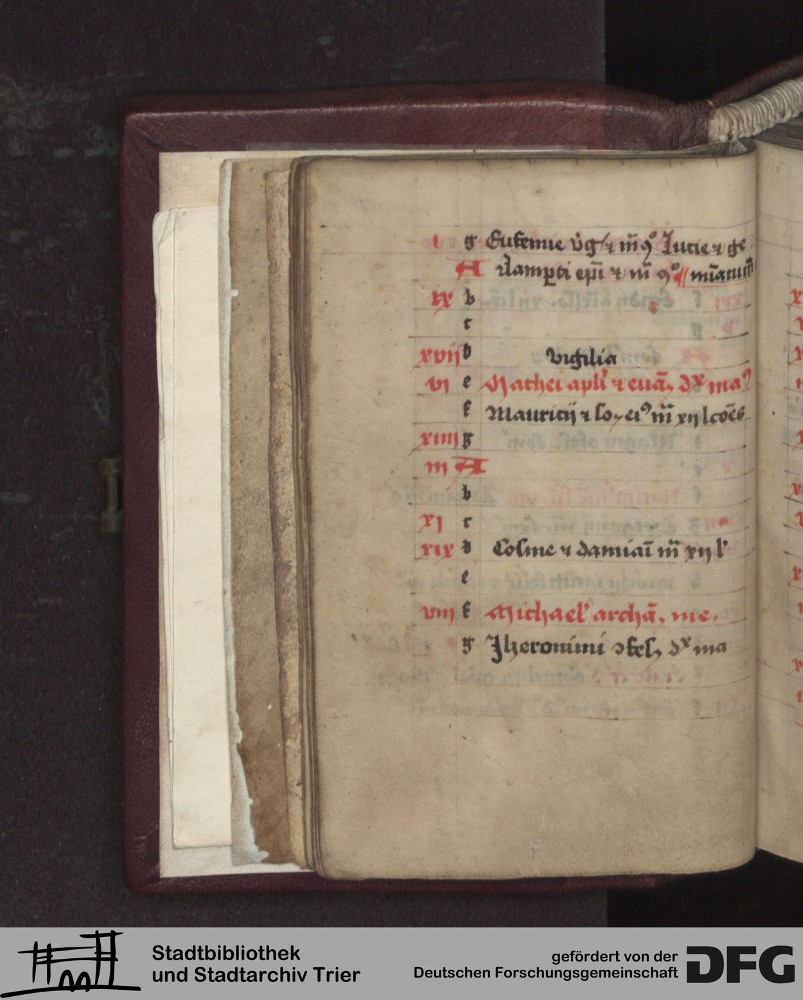 i g Eufemie v̄g̕ ⁊ m̄ 9ᵒ Lucie ⁊ ge
A Lamp̱ti ep̄i ⁊ m̄ 9ᵒ
ix b
c
xvij d Vigilia
vj e Mathei apl̕i ⁊ euā, dx̄ ma
f Mauricij ⁊ so, ei9 m̄ xij lcōes
xiiij g
iij A
b
xj c
xix d Cosme ⁊ damiaī m̄ xij l̕
e
viij f Michael̕ archā, me,
g Jheronimi ↄfes, dx̄ ma
Stadtbibliothek
und Stadtarchiv Trier
gefördert von der
Deutschen Forschungsgemeinschaft
DFG